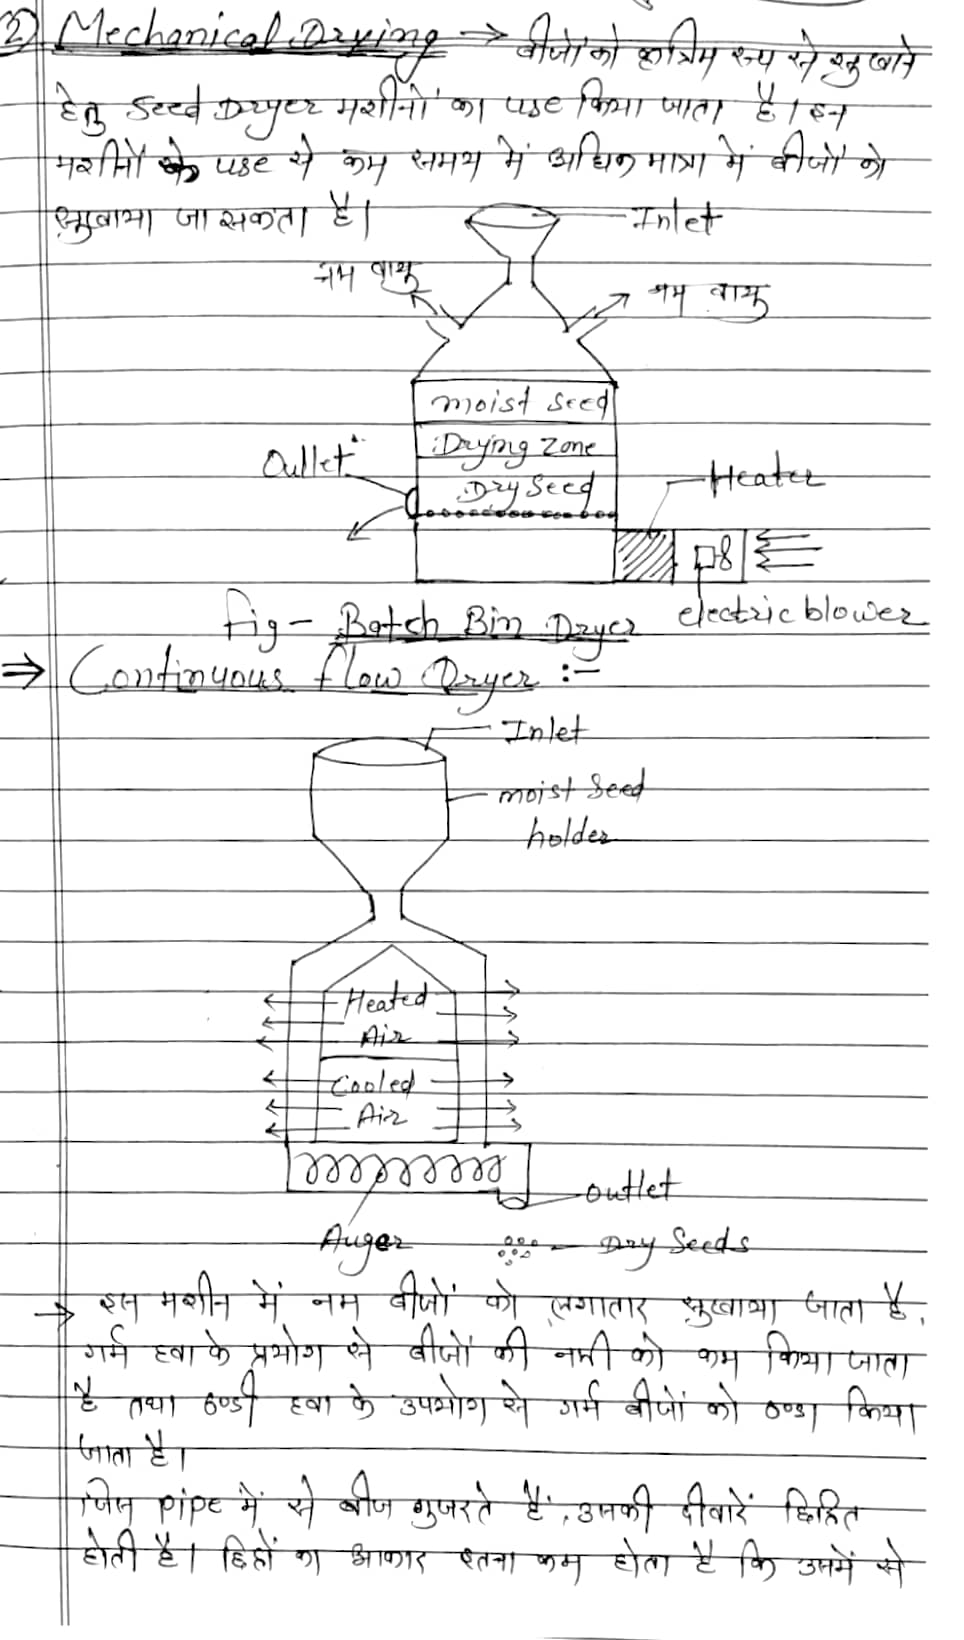 2) Mechanical Drying → बीजों को कृत्रिम रूप से सुखाने
हेतु Seed Dryer मशीनों का use किया जाता है। इन
मशीनों के use से कम समय में अधिक मात्रा में बीजों को
सुखाया जा सकता है।
Inlet
नम वायु
नम वायु
moist seed
Drying zone
Outlet
Dry Seed
Heater
electric blower
fig - Batch Bin Dryer
⇒ Continuous flow Dryer :-
Inlet
moist Seed
holder
Heated
Air
Cooled
Air
outlet
Auger
Dry Seeds
→ इस मशीन में नम बीजों को लगातार सुखाया जाता है,
गर्म हवा के प्रयोग से बीजों की नमी को कम किया जाता
है तथा ठण्डी हवा के उपयोग से गर्म बीजों को ठण्डा किया
जाता है।
जिस pipe में से बीज गुजरते हैं, उसकी दीवारें छिद्रित
होती है। छिद्रों का आकार इतना कम होता है कि उसमें से